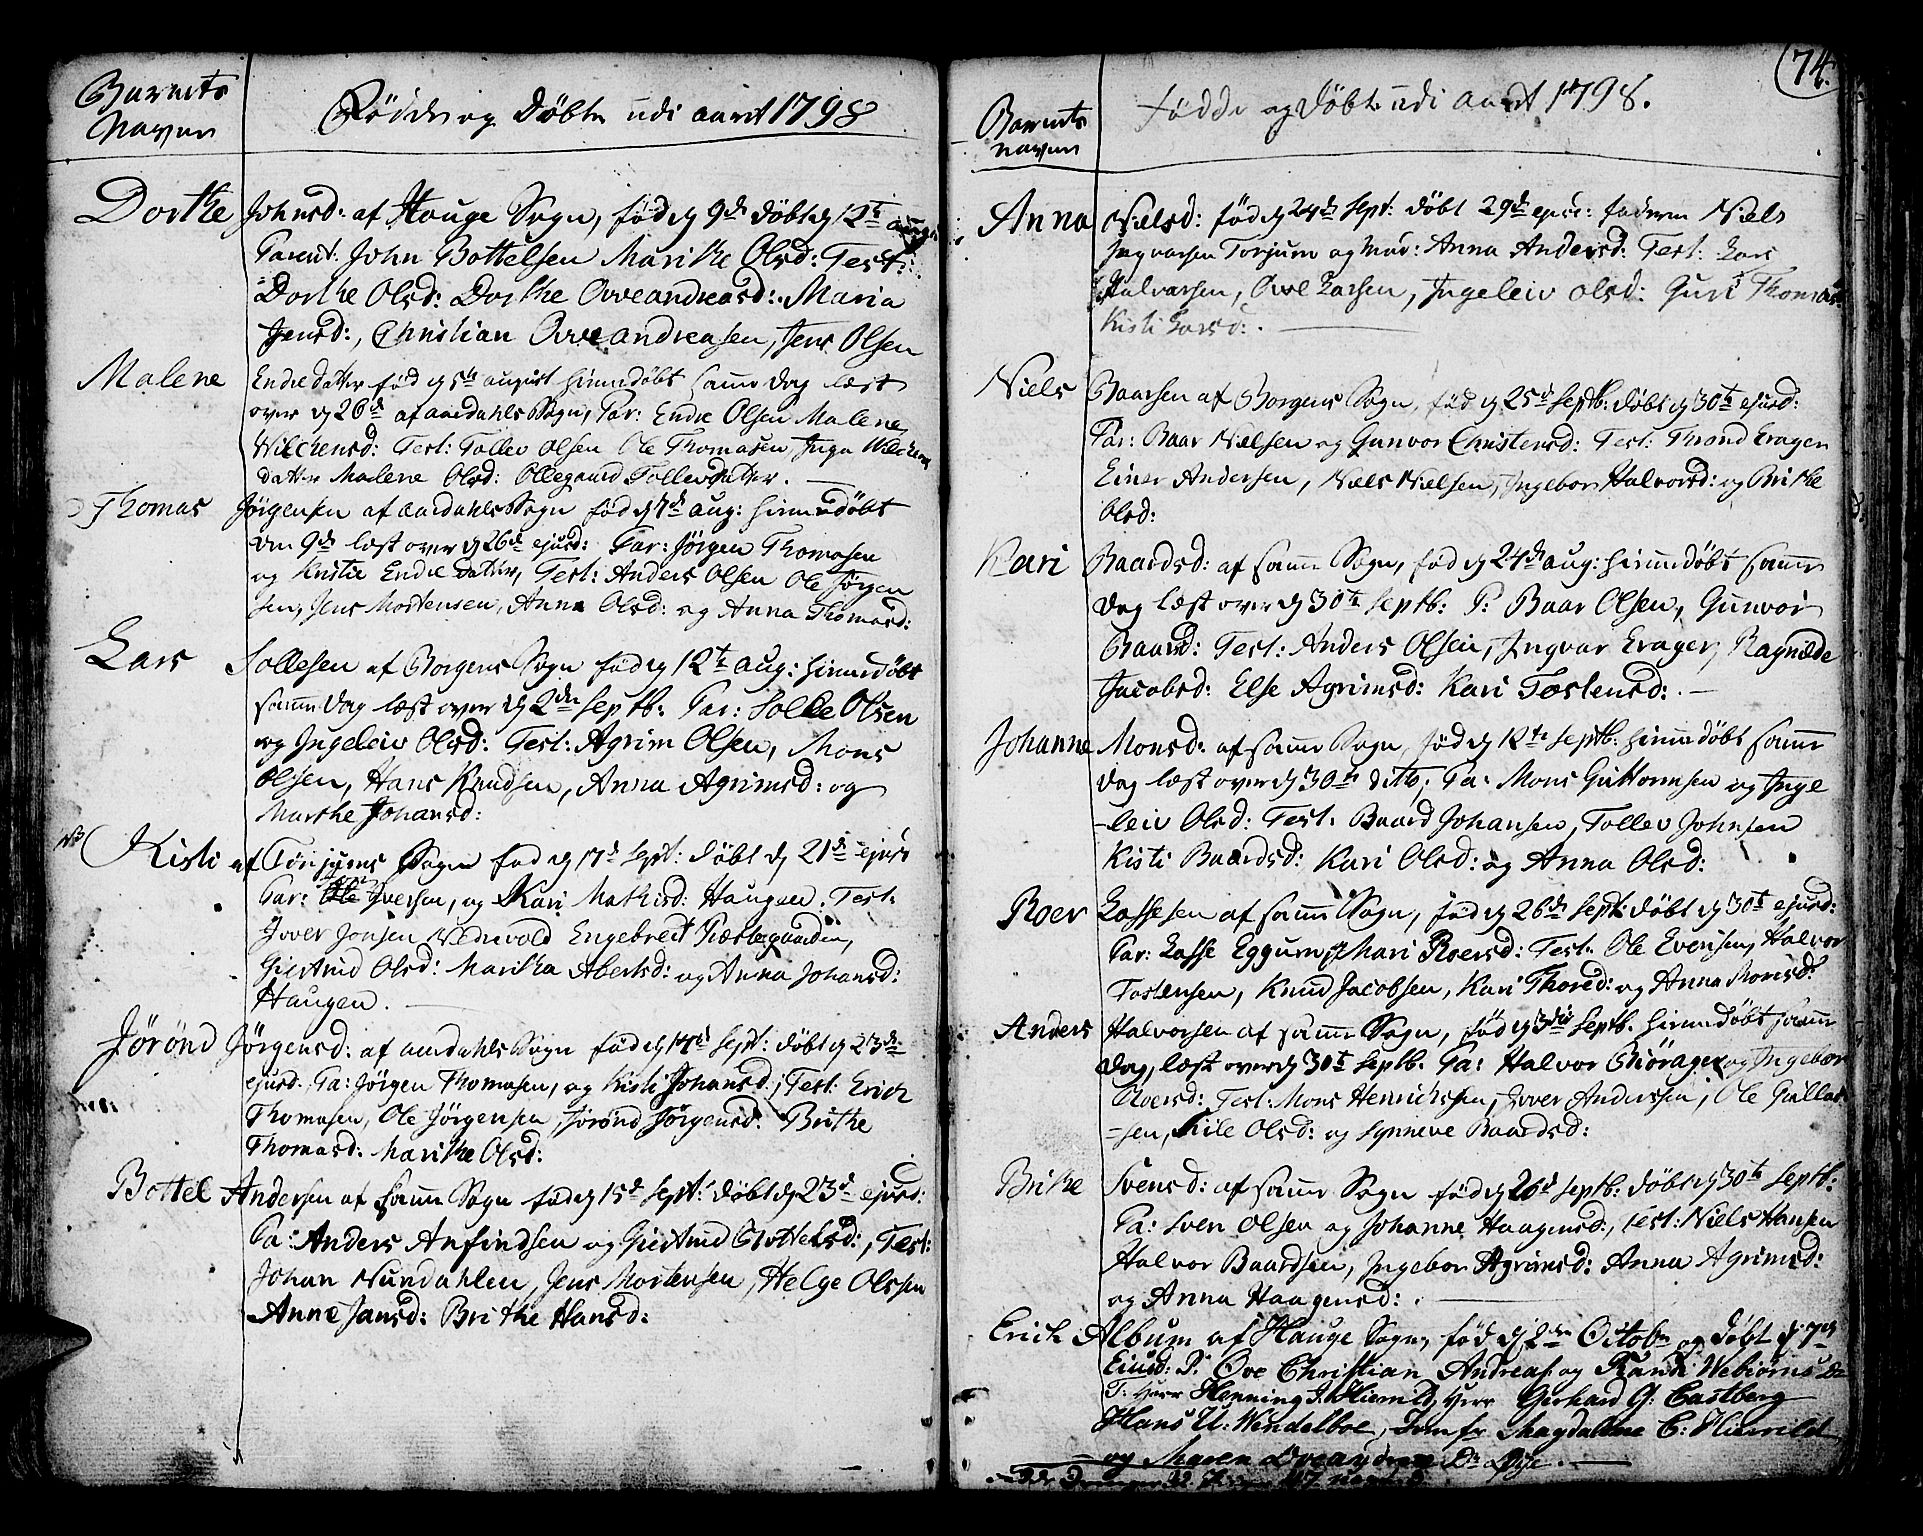 Barnets
Navn
Födde og Döbte udi aaret 1798
Dorthe Johnsd: af Hauge Sogn, föd d 9de döbt d 12te aug:
Parent: John Bottelsen Marithe Olsd: Test:
Dorthe Olsd: Dorthe Oveandreasd: Maria
Jensd:, Christian Oveandreasen, Jens Olsen
Malene Endredatter föd d 5te august hiemedöbt samme dag læst
over d 26de af aardahls Sogn, Par: Endre Olsen Malene
Wilchensd: Test: Tollev Olsen Ole Thomasen, Inga Wilchens
datter Malene Olsd: Ollegaard Tollevdatter.
Thomas Jörgensen af aardahls Sogn föd d 7de aug: hiemedöbt
den 9de læst over d 26de ejusd: Par: Jörgen Thomasen
og Kristie Endredatter, Test: Anders Olsen Ole Jörgen
sen, Jens Mortensen, Anna Olsd: og Anna Thomasd:
Lars Sollesen af Borgens Sogn föd d 12te aug: hiemedöbt
samme dag læst over d 2den Septb: Par: Solle Olsen
og Ingeleiv Olsd: Test: Agrim Olsen, Mons
Olsen, Hans Knudsen, Anna Agrimsd: og
Marthe Johansd:
NB Kisti af Tönjums Sogn föd d 17d Sept: döbt d 21de ejusd
Par: Iversen, og Kari Mathisd: Haugen. Test:
Iver Jonsen Nedrevold Engebrect Præstegaarden,
Giertrud Olsd: Maritha Abertsd: og Anna Johansd:
Haugen.
Jörönd Jörgensd: af aardahls Sogn föd d 17de Sept: döbt d 23de
ejusd. Pa: Jörgen Thomasen, og Kisti Johansd:, Test: Erich
Thomasen, Ole Jörgensen, Jörönd Jörgensd: Brithe
Thomasd: Marithe Olsd:
Bottel Andersen af samme Sogn föd d 15de Sept: döbt d 23de ejusd:
Pa: Anders Anfindsen og Giertrud Bottelsd:, Test:
Johan Nundahlen, Jens Mortensen, Helge Olssen
Anne Jansd: Brithe Hansd:
74.
Barnets
navn
Födde og döbte udi aaret 1798.
Anna Nielsd: föd d 24de Sept: döbt 29de ejusd: faderen Niels
Ingvarsen Tonjum og Mod: Anna Andersd: Test: Lars
Halvorsen, Ovel Larsen, Ingeleiv Olsd: Guri Thomasd
Kisti Larsd:.
Niels Baarsen af Borgens Sogn, föd d 25de Septb: döbt d 30te ejusd:
Par: Baar Nielsen og Gunvor Christensd: Test: Thrond Erager
Einer Andersen, Niels Nielsen, Ingebor Halvorsd: og Brithe
Olsd:
Kari Baardsd: af samme Sogn, föd d 24de aug: hiemedöbt samme
dag læst over d 30te Septb: P: Baar Olsen, Gunvor
Baarsd: Test: Anders Olsen, Ingvar Erager, Ragnilde
Jacobsd: Else Agrimsd: Kari Tostensd:.
Johanne Monsd: af samme Sogn, föd d 12te Septb: hiemedöbt samme
dag læst over d 30te dito, Pa: Mons Guttormsen og Inge
-leiv Olsd: Test: Baard Johansen, Tollev Johnsen
Kisti Baardsd: Kari Olsd: og Anna Olsd:
Roer Lassesen af samme Sogn, föd d 26de Sept: döbt d 30te ejusd:
Par: Lasse Eggum, Mari Roersd: Test: Ole Evensen, Halvor
Tostensen, Knud Jacobsen, Kari Thored: og Anna Monsd:
Anders Halvorsen af samme Sogn, föd d 3die Septb. hiemedöbt samme
dag, læst over d 30te Septb. Pa: Halvor og Ingebor
Olversd: Test: Mons Henrichsen, Iver Anderssen, Ole
-sen, Kile Olsd: og Synneve Baardsd:
Brithe Svensd: af samme Sogn föd d 26d Septb: döbt d 30te Septb:
Pa: Sven Olsen og Johanne Haagensd:, Test: Niels Hansen
Halvor Baardsen, Ingebor Agrimsd: Anna Agrimsd:
og Anna Haagensd:.
Erich Album af Hauge Sogn, föd d 2den Octobr og döbt d 7de
Ejusd: P: Ove Christian Andreas. og Randi Webiörns Da
T: Herr Henning J. Hiermild, Herr Gerhard G: Castberg
Hans U: Windelboe, Jomfr Magdalena C: Hiermild
og Maren Oveandreæ Dr Öye.